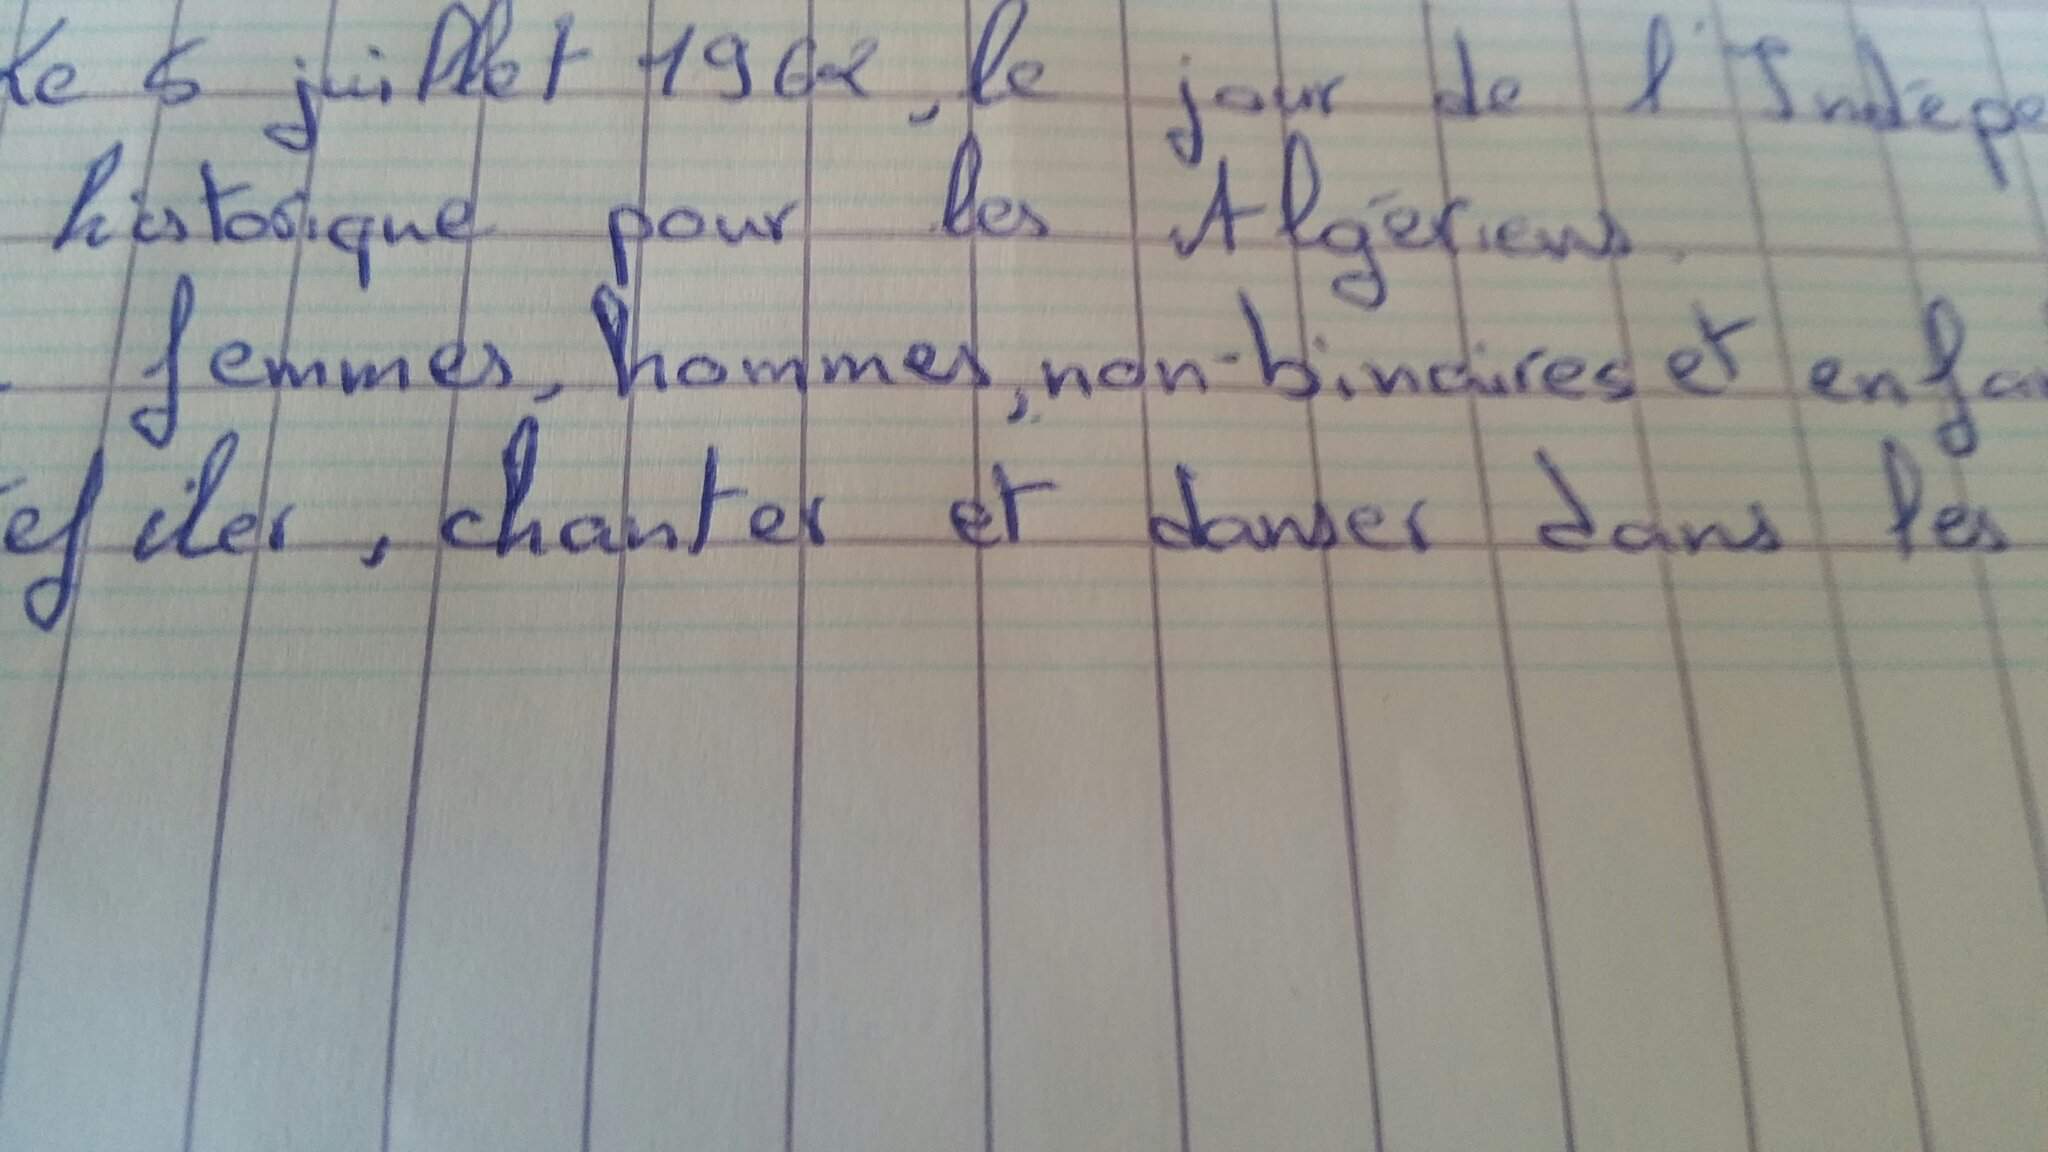 Le 5 juillet 1962, le jour de l'Indépe
historique pour les Algériens.
femmes, hommes, non-binaires et enfan
éfiler, chanter et danser dans les